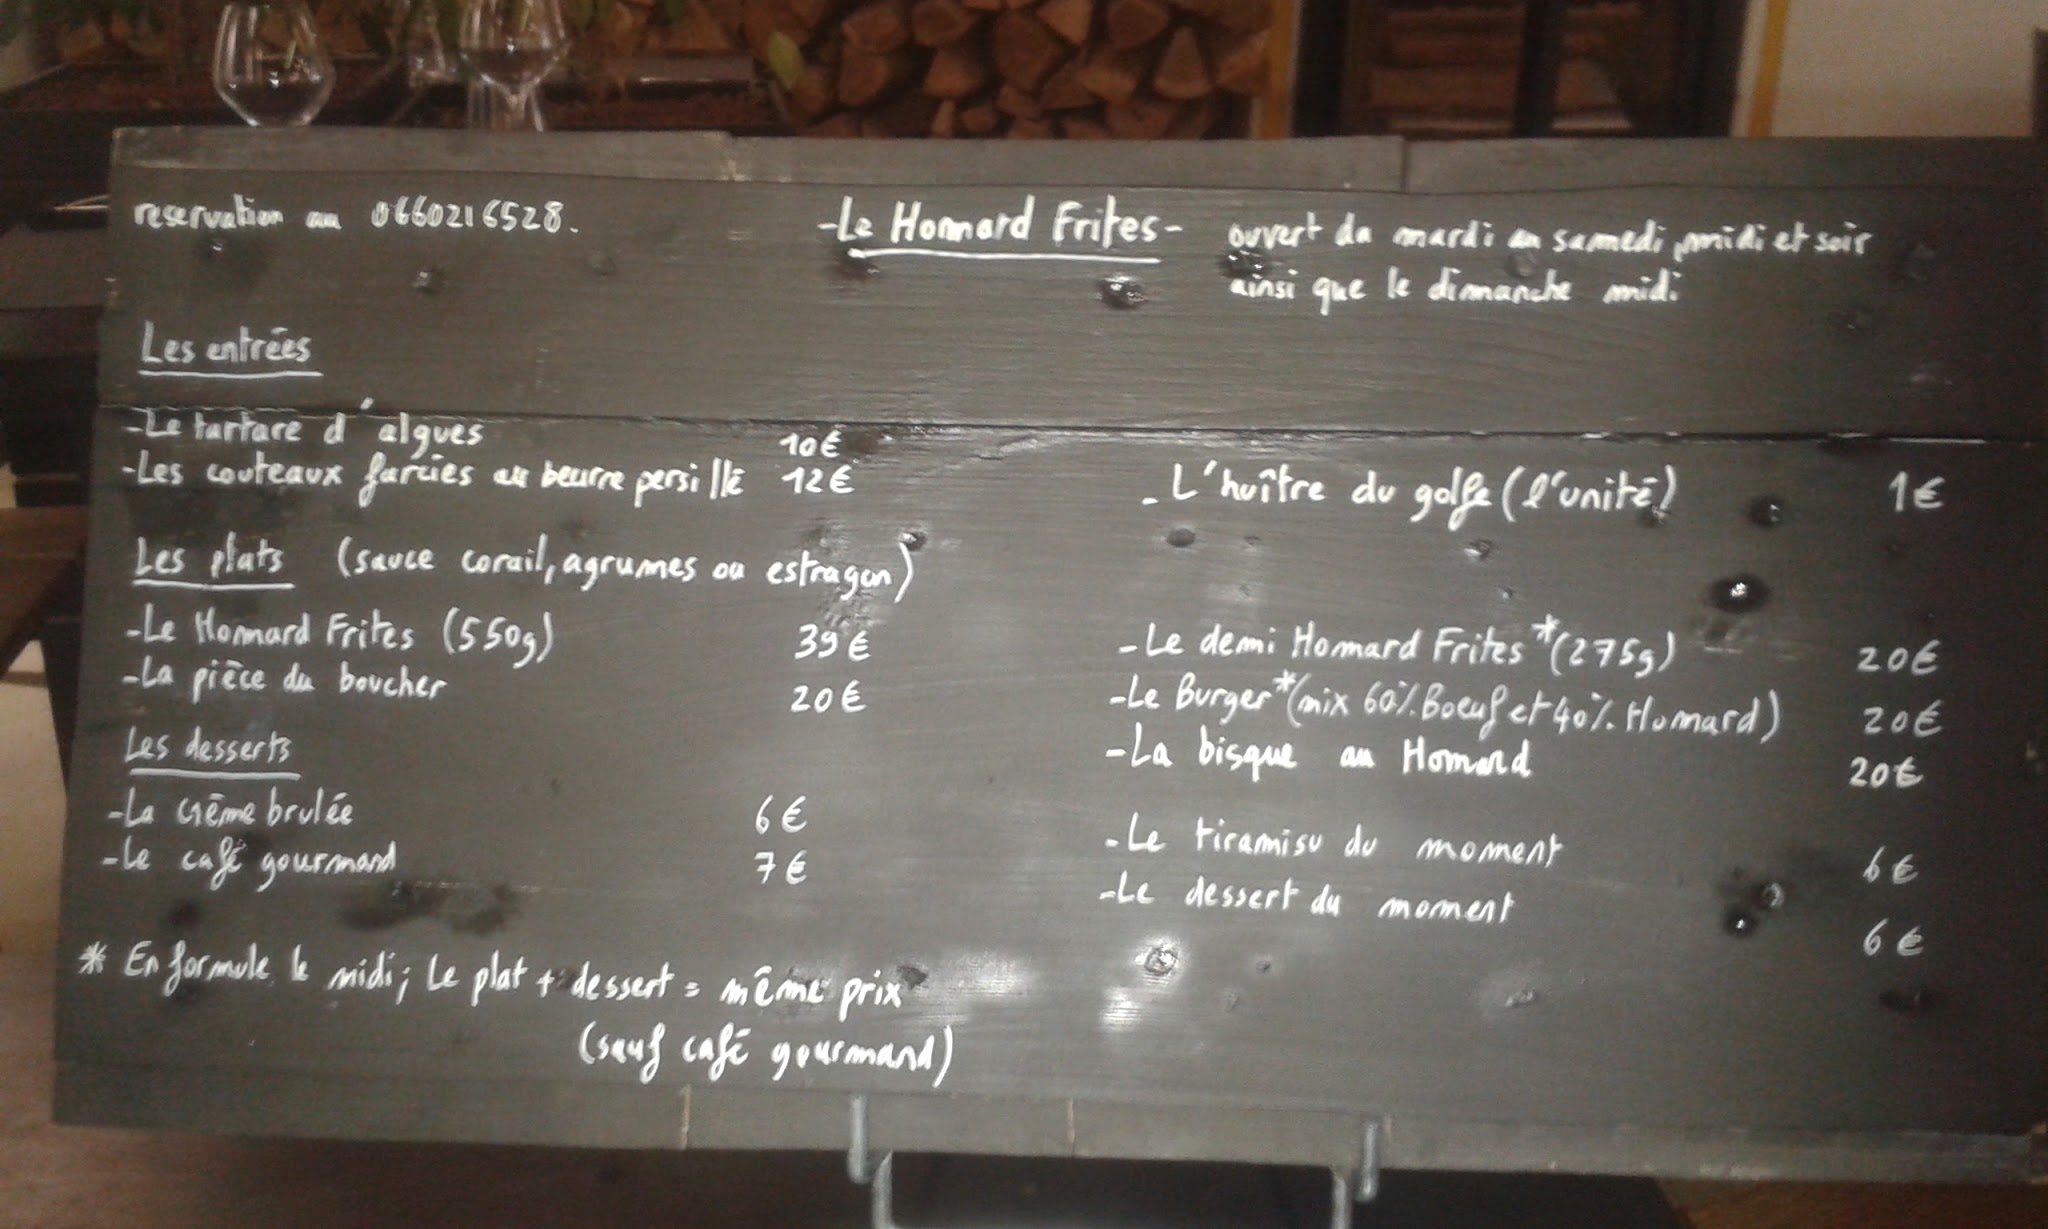 reservation au 0660216528.
-Le Homard Frites-
ouvert du mardi au samedi, midi et soir
ainsi que le dimanche midi
Les entrées
-Le tartare d'algues 10€
-Les couteaux farcies au beurre persillé 12€
-L'huître du golfe (l'unité) 1€
Les plats (sauce corail, agrumes ou estragon)
-Le Homard Frites (550g) 39€
-La pièce du boucher 20€
-Le demi Homard Frites*(275g) 20€
-Le Burger*(mix 60% Boeuf et 40% Homard) 20€
-La bisque au Homard 20€
Les desserts
-La crème brulée 6€
-Le café gourmand 7€
-Le tiramisu du moment 6€
-Le dessert du moment 6€
* En formule le midi; Le plat + dessert = même prix
(sauf café gourmand)